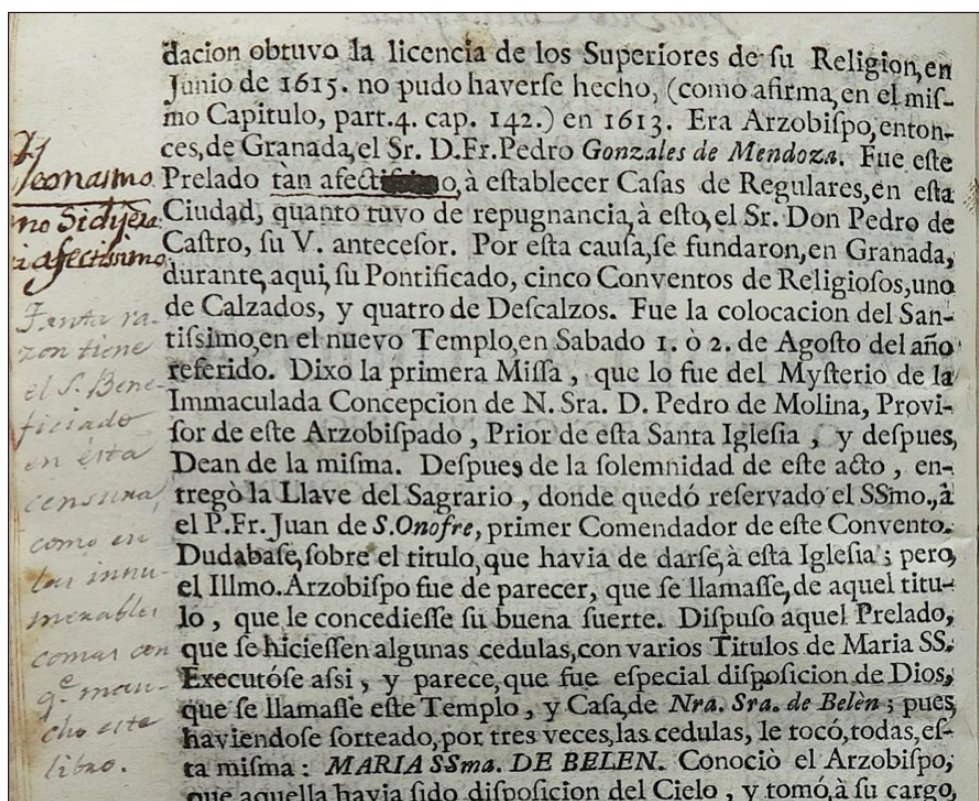 dacion obtuvo la licencia de los Superiores de ſu Religion, en
Junio de 1615. no pudo haverſe hecho, (como afirma, en el miſ-
mo Capitulo, part.4. cap. 142.) en 1613. Era Arzobiſpo, enton-
ces, de Granada, el Sr. D.Fr.Pedro Gonzales de Mendoza. Fue eſte
Prelado tàn afecti o, à eſtablecer Caſas de Regulares, en eſta
Ciudad, quanto tuvo de repugnancia, à eſto, el Sr. Don Pedro de
Caſtro, ſu V. anteceſor. Por eſta cauſa, ſe fundaron, en Granada,
durante, aqui, ſu Pontificado, cinco Conventos de Religioſos, uno
de Calzados, y quatro de Deſcalzos. Fue la colocacion del San-
tiſſimo, en el nuevo Templo, en Sabado 1. ò 2. de Agoſto del año
referido. Dixo la primera Miſſa, que lo fue del Myſterio de la
Immaculada Concepcion de N. Sra. D. Pedro de Molina, Provi-
ſor de eſte Arzobiſpado, Prior de eſta Santa Igleſia, y deſpues,
Dean de la miſma. Deſpues de la ſolemnidad de eſte acto, en-
tregò la Llave del Sagrario, donde quedó reſervado el SSmo., à
el P.Fr. Juan de S.Onofre, primer Comendador de eſte Convento.
Dudabaſe, ſobre el titulo, que havia de darſe, à eſta Igleſia; pero,
el Illmo. Arzobiſpo fue de parecer, que ſe llamaſſe, de aquel titu-
lo, que le concedieſſe ſu buena ſuerte. Diſpuſo aquel Prelado,
que ſe hicieſſen algunas cedulas, con varios Titulos de Maria SS.
Executóſe aſsi, y parece, que fue eſpecial diſpoſicion de Dios,
que ſe llamaſſe eſte Templo, y Caſa, de Nra. Sra. de Belèn; pues,
haviendoſe ſorteado, por tres veces, las cedulas, le tocó, todas, eſ-
ta miſma: MARIA SSma. DE BELEN. Conociò el Arzobiſpo,
que aquella havia ſido diſpoſicion del Cielo, y tomó, à ſu cargo,
leonasmo
no Sidijera
afectissimo.
Tanta ra-
zon tiene
el S. Bene-
ficiado
en ésta
censura,
como en
las innu-
merables
comas con
q.e man-
cho este
libro.